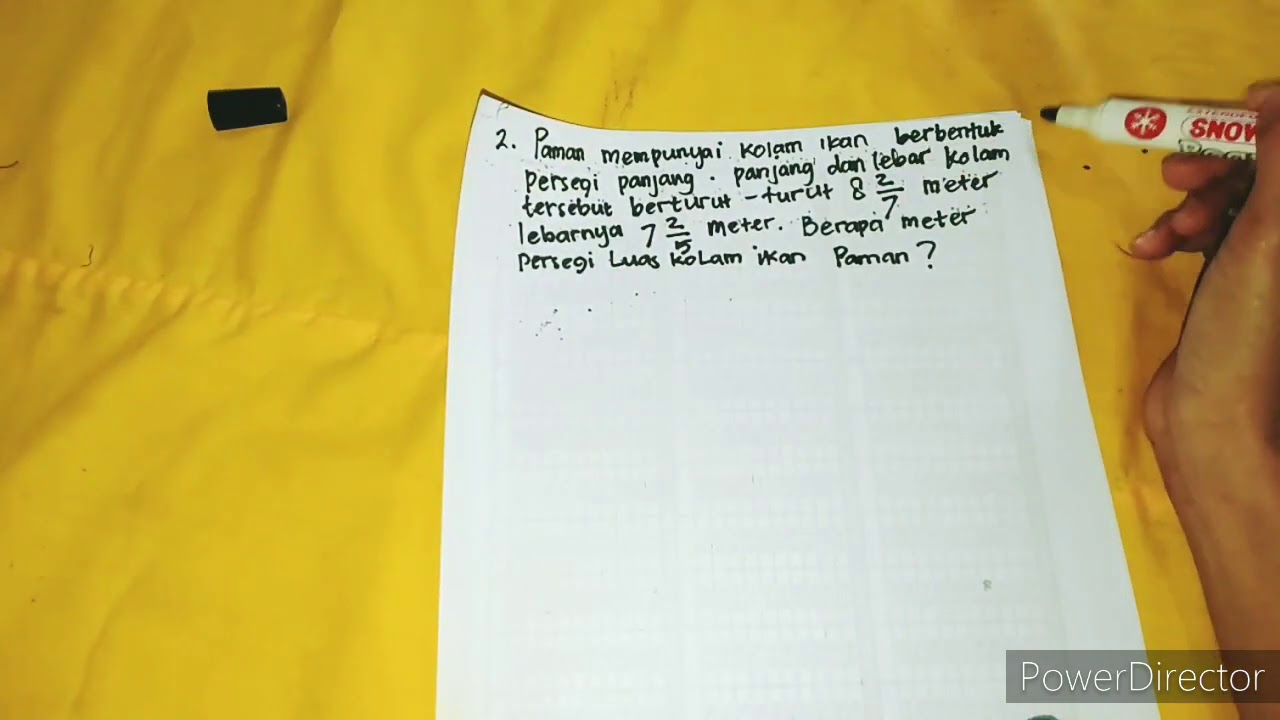 2. Paman mempunyai kolam ikan berbentuk
persegi panjang. panjang dan lebar kolam
tersebut berturut-turut 8 2/7 meter
lebarnya 7 2/5 meter. Berapa meter
persegi Luas kolam ikan Paman?
SNOW
PowerDirector